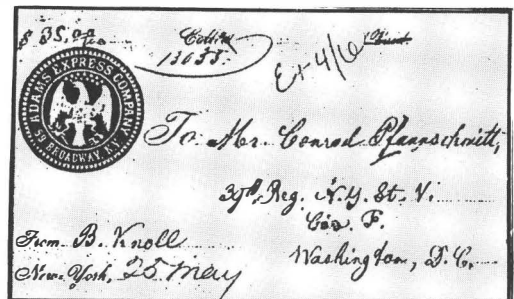 $ 35.00/00 Collins
13055. Ex 4/6
ADAMS EXPRESS COMPANY
59 BROADWAY, N.Y.
To Mr. Conrad Pfannschmitt,
Reg. N.Y. St. V.
Co. F.
Washington, D.C.
From B. Knoll
New York, 25 May